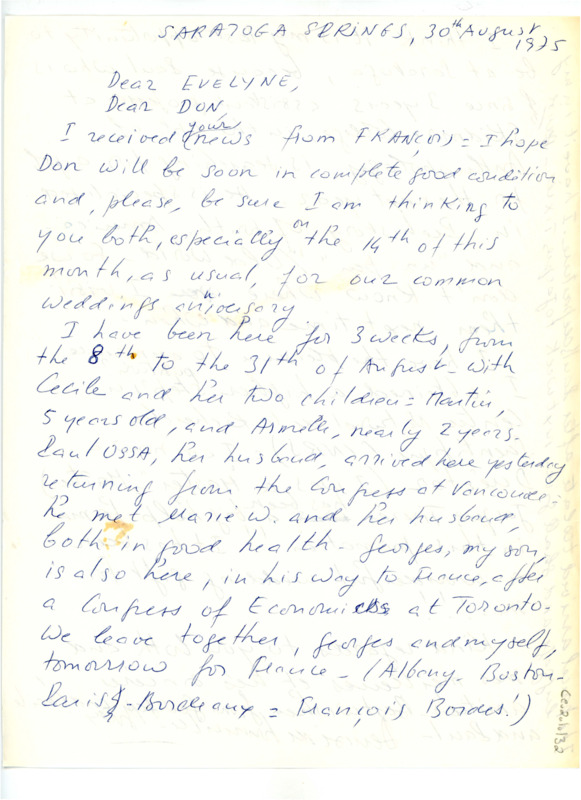 SARATOGA SPRINGS, 30th August
1975
Dear EVELYNE,
Dear DON,
your
I received news from FRANÇOIS = I hope
Don will be soon in complete good condition
and, please, be sure I am thinking to
you both, especially on the 14th of this
month, as usual, for our common
weddings anniversary
I have been here for 3 weeks, from
the 8th to the 31th of August - with
Cecile and her two children = Martin,
5 years old, and Armelle, nearly 2 years.
Paul OSSA, her husband, arrived here yesterday
returning from the Congress at Vancouver =
he met Marie W. and her husband,
both in good health - Georges, my son,
is also here, in his way to France, after
a Congress of Economics at Toronto.
We leave together, Georges and myself,
tomorrow for France - (Albany. Boston-
Paris - Bordeaux = François Bordes!)